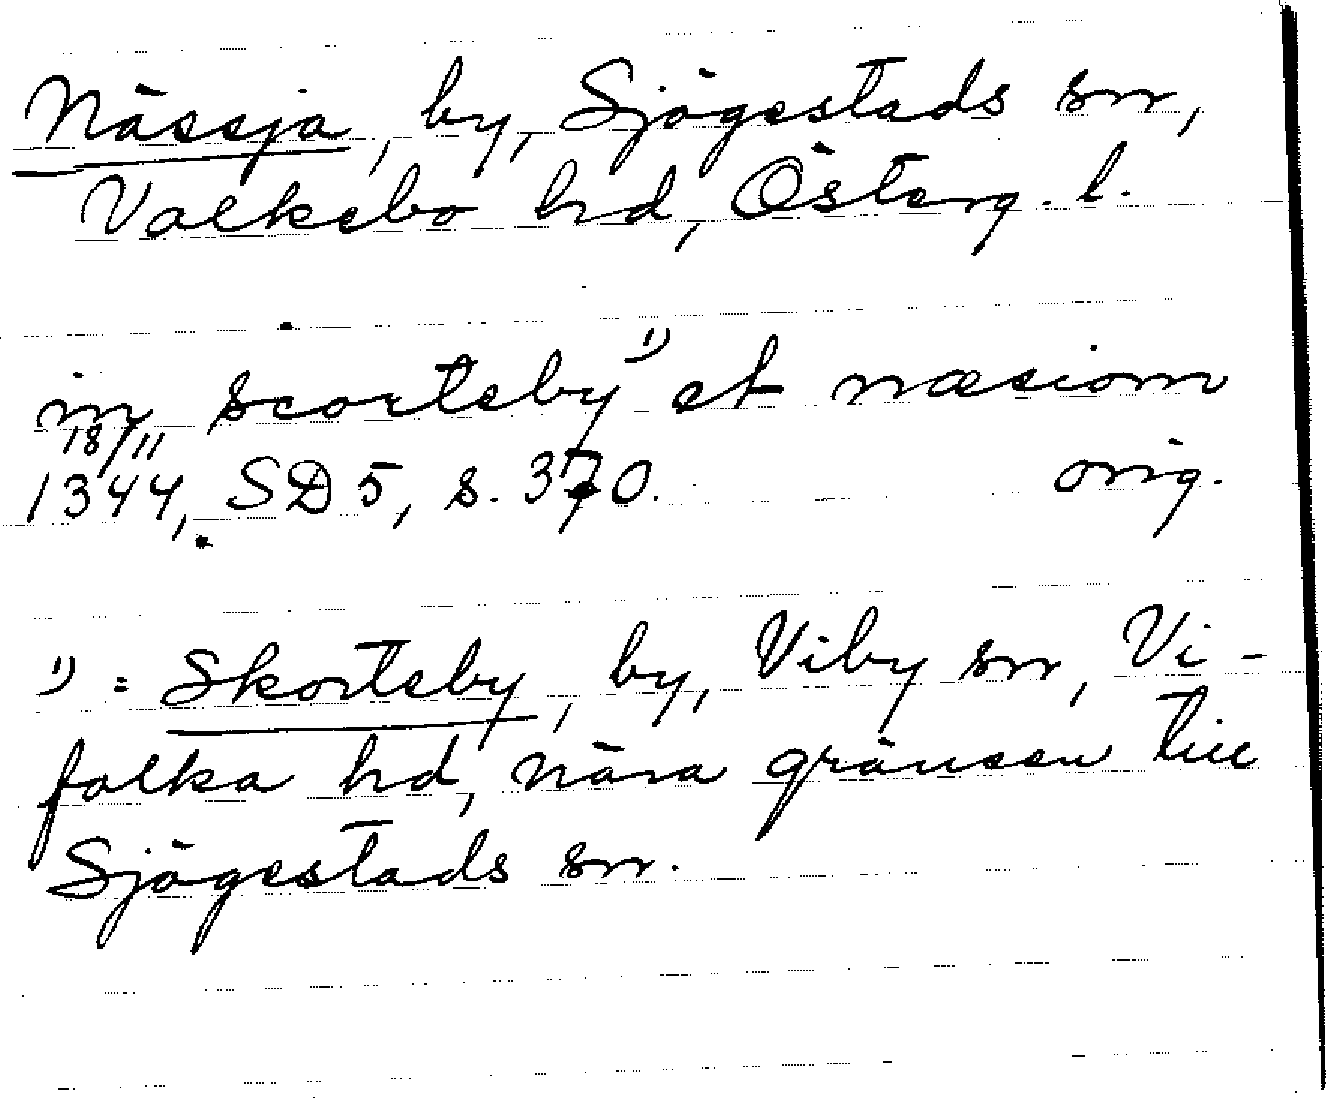 Nässja, by, Sjögestads sn,
Valkebo hd, Österg. l.
in scortsby 1) et næsiom
18/11
1344, SD 5, s. 370. orig.
1) = Skortsby, by, Viby sn, Vi-
folka hd, nära gränsen till
Sjögestads sn.